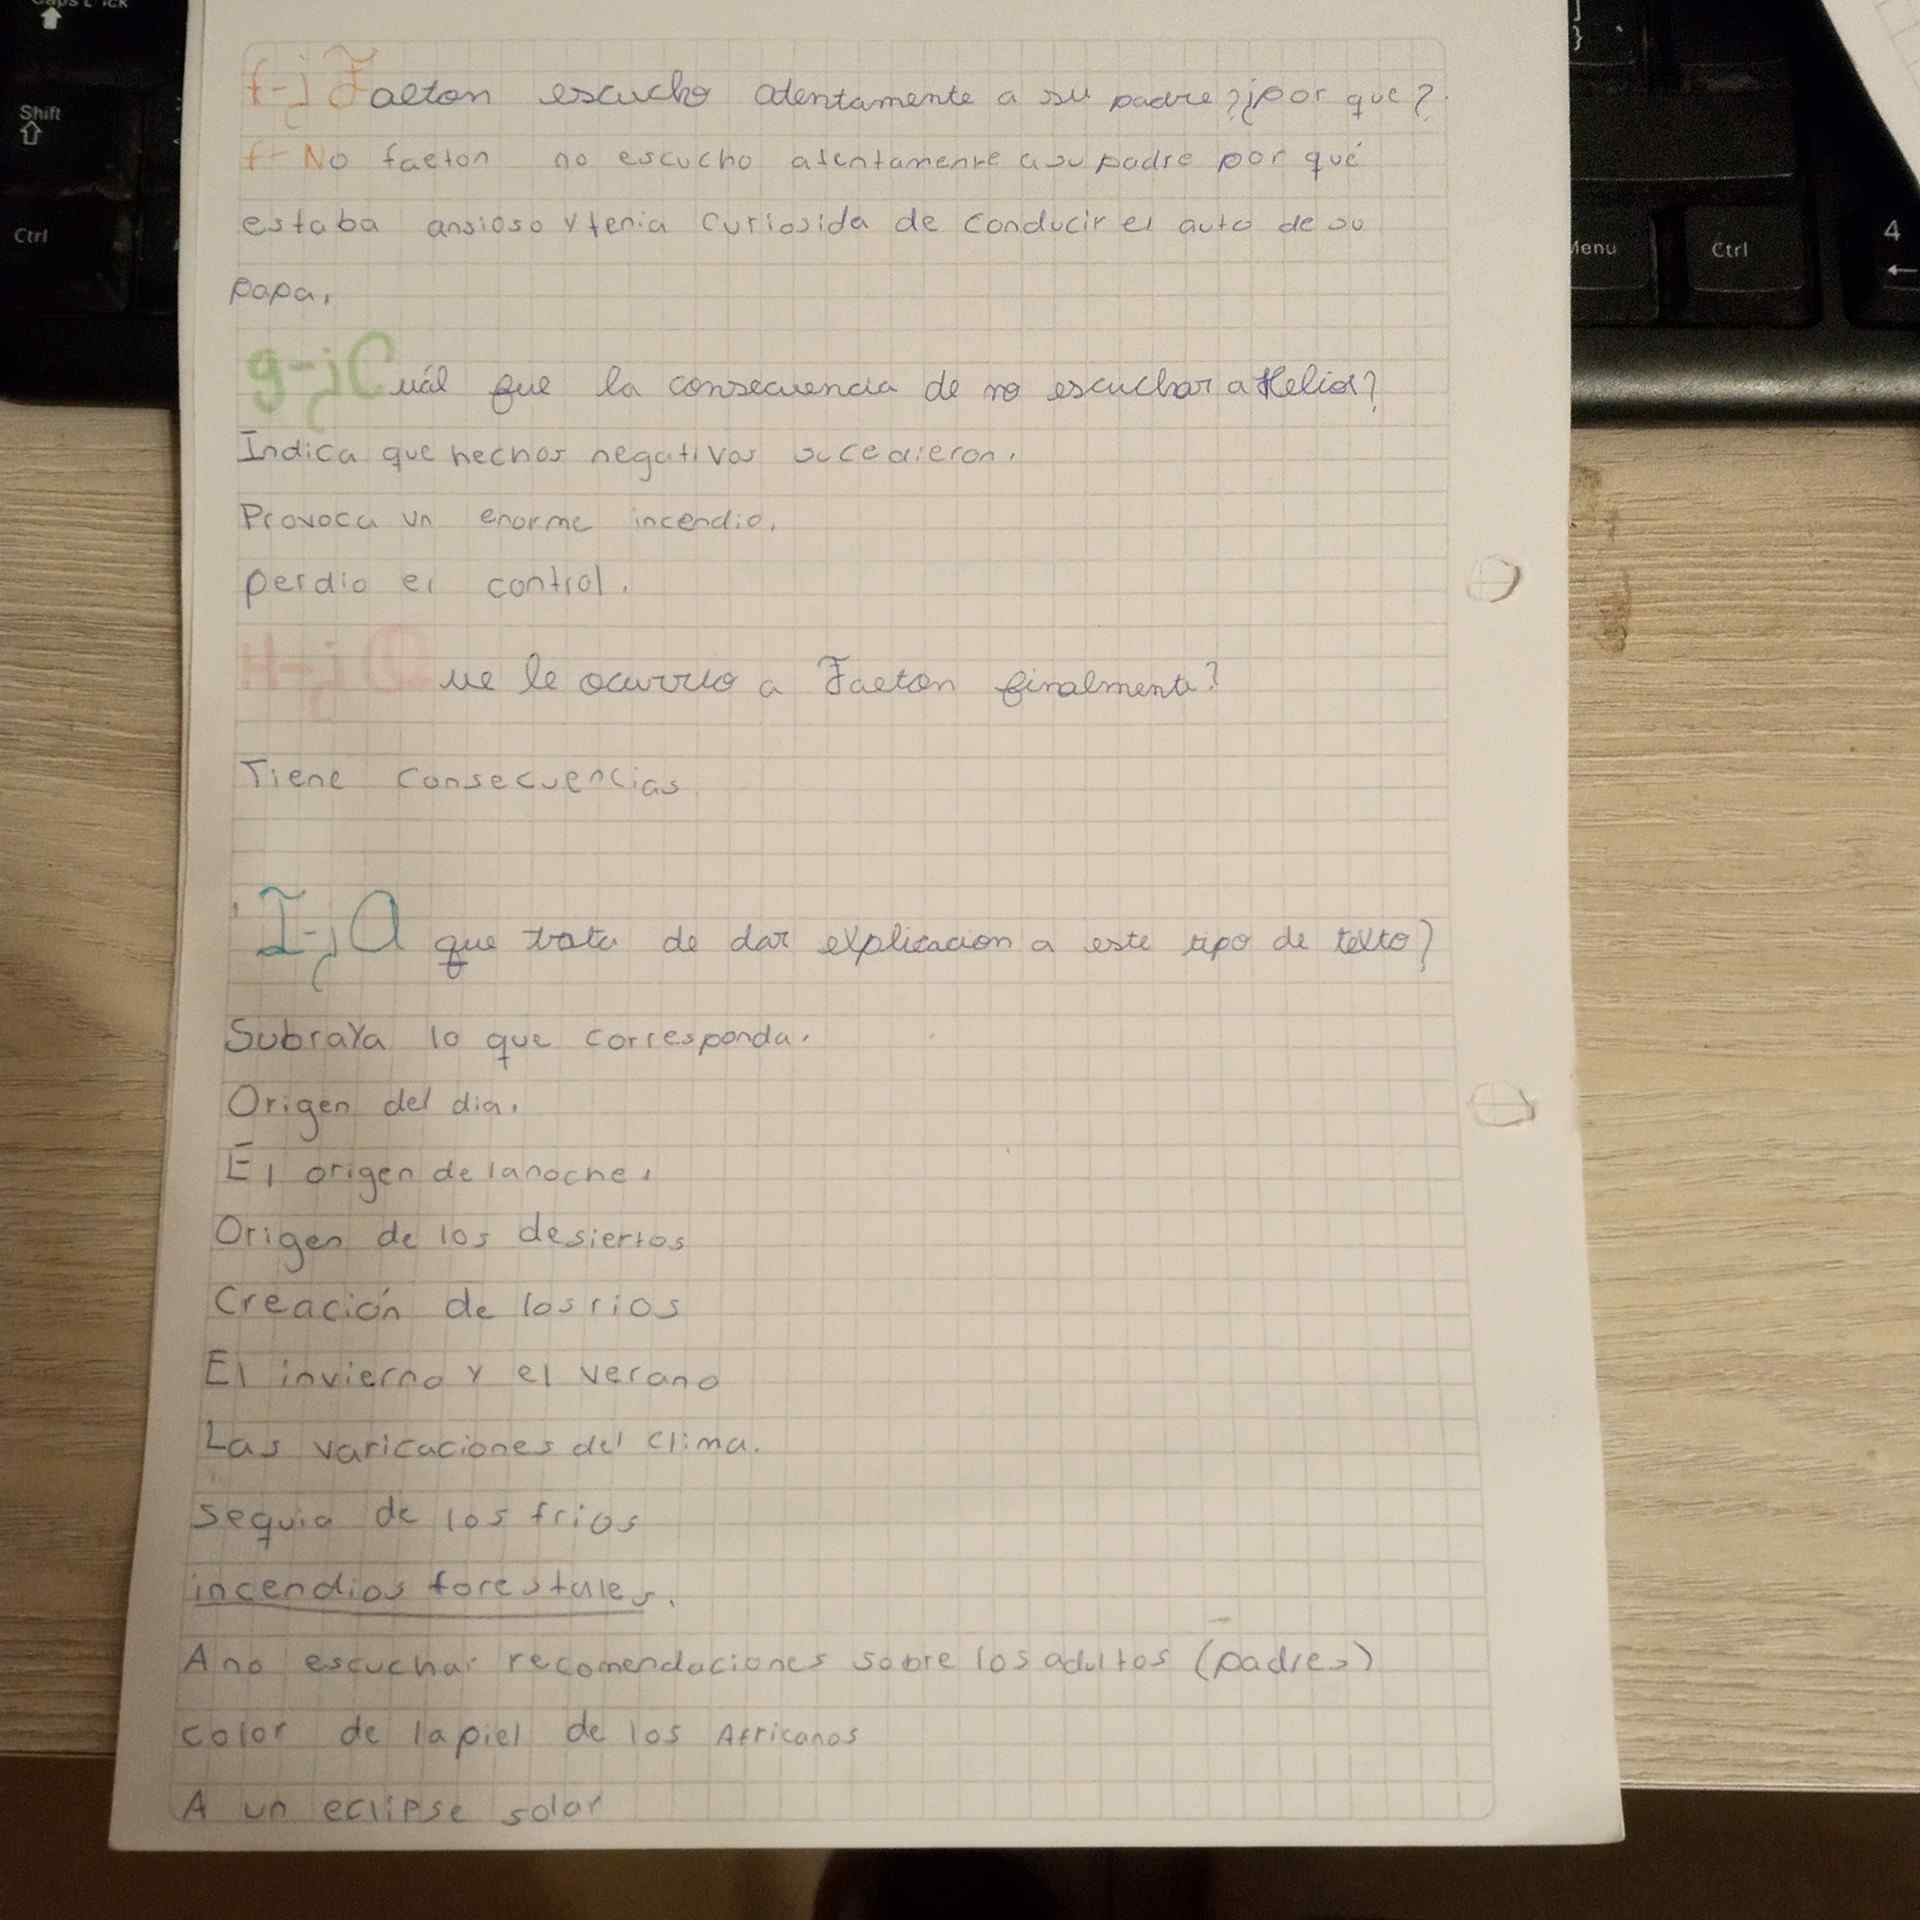 Caps Lock
Shift
Ctrl
Menu
Ctrl
4
}
f-¿Faeton escucho atentamente a su padre?¿por que?
f- No faeton no escucho atentamente a su padre por qué
estaba ansioso y tenia curiosida de conducir el auto de su
papa.
g-¿Cuál fue la consecuencia de no escuchar a Helios?
Indica que hechos negativos sucedieron.
Provoca un enorme incendio.
perdio el control.
H-¿Que le ocurrio a Faeton finalmente?
Tiene consecuencias
I-¿A que trata de dar explicacion a este tipo de texto?
Subraya lo que corresponda.
Origen del dia.
El origen de la noche.
Origen de los desiertos
Creación de los rios
El invierno y el verano
Las varicaciones del clima.
sequia de los frios
incendios forestales.
A no escuchar recomendaciones sobre los adultos (padres)
color de la piel de los Africanos
A un eclipse solar